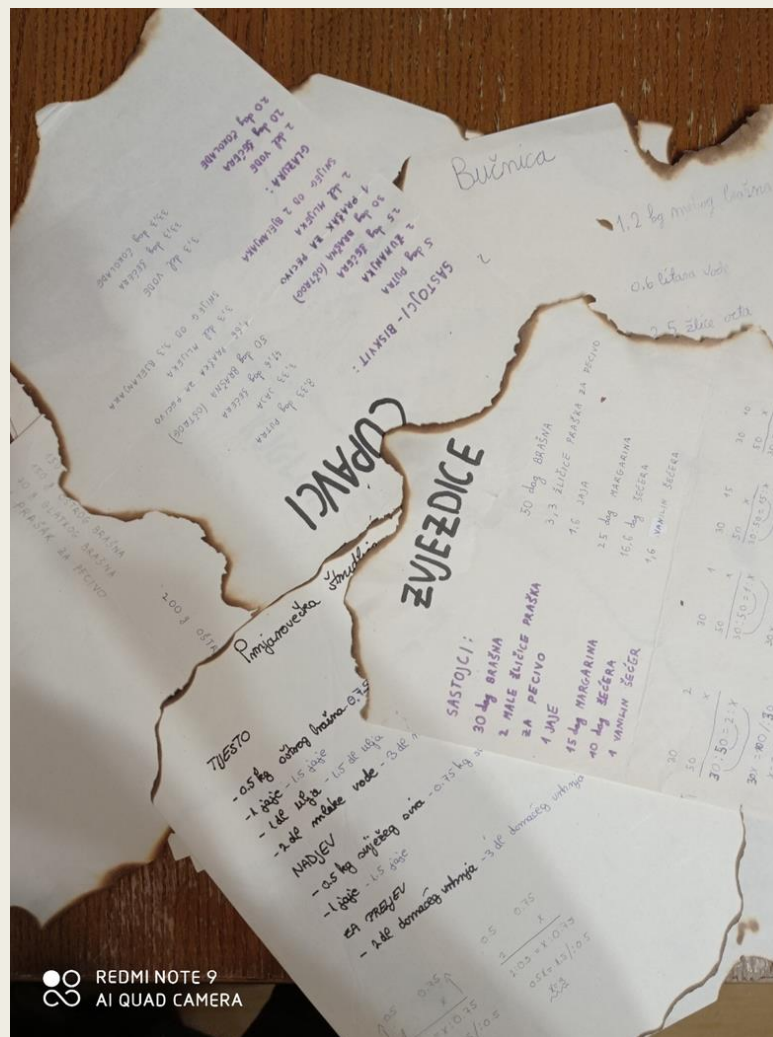 ČUPAVCI
SASTOJCI - BISKVIT:
5 dag PUTRA
2 ŽUMANJKA
25 dag ŠEĆERA
30 dag BRAŠNA (OŠTROG)
1 PRAŠAK ZA PECIVO
2 del MLIJEKA
SNIJEG OD 2 BJELANJKA
GLAZURA:
2 del VODE
20 dag ŠEĆERA
20 dag ČOKOLADE
8,33 dag PUTRA
3,33 JAJA
41,6 dag ŠEĆERA
50 dag BRAŠNA (OŠTROG)
1,66 PRAŠKA ZA PECIVO
3,3 del MLIJEKA
SNIJEG OD 3,3 BJELANJAKA
3,3 del VODE
33,3 dag ŠEĆERA
33,3 dag ČOKOLADE
Bučnica
1.2 kg brašna
0.6 litara vode
2.5 žlice octa
ZVJEZDICE
SASTOJCI:
30 dag BRAŠNA
2 MALE ŽLIČICE PRAŠKA
ZA PECIVO
1 JAJE
15 dag MARGARINA
10 dag ŠEĆERA
1 VANILIN ŠEĆER
50 dag BRAŠNA
3,3 ŽLIČICE PRAŠKA ZA PECIVO
1,6 JAJA
25 dag MARGARINA
16,6 dag ŠEĆERA
1,6 VANILIN ŠEĆERA
30 2
50 x
30:50=2:x
30 1
50 x
30:50=1:x
30 15
50 x
30:50=15:x
30 10
50 x
OŠTROG BRAŠNA
GLATKOG BRAŠNA
PRAŠAK ZA PECIVO
200 g OŠTR
Prnjarovečka štrudl
TIJESTO
- 0.5 kg oštrog brašna 0.75
- 1 jaje - 1.5 jaje
- 1 dl ulja - 1.5 dl ulja
- 2 dl mlake vode - 3 dl
NADJEV
- 0.5 kg svježeg sira - 0.75 kg
- 1 jaje - 1.5 jaje
ZA PRELJEV
- 2 dl domaćeg vrhnja - 3 dl domaćeg vrhnja
0.5 0.75
2 x
REDMI NOTE 9
AI QUAD CAMERA